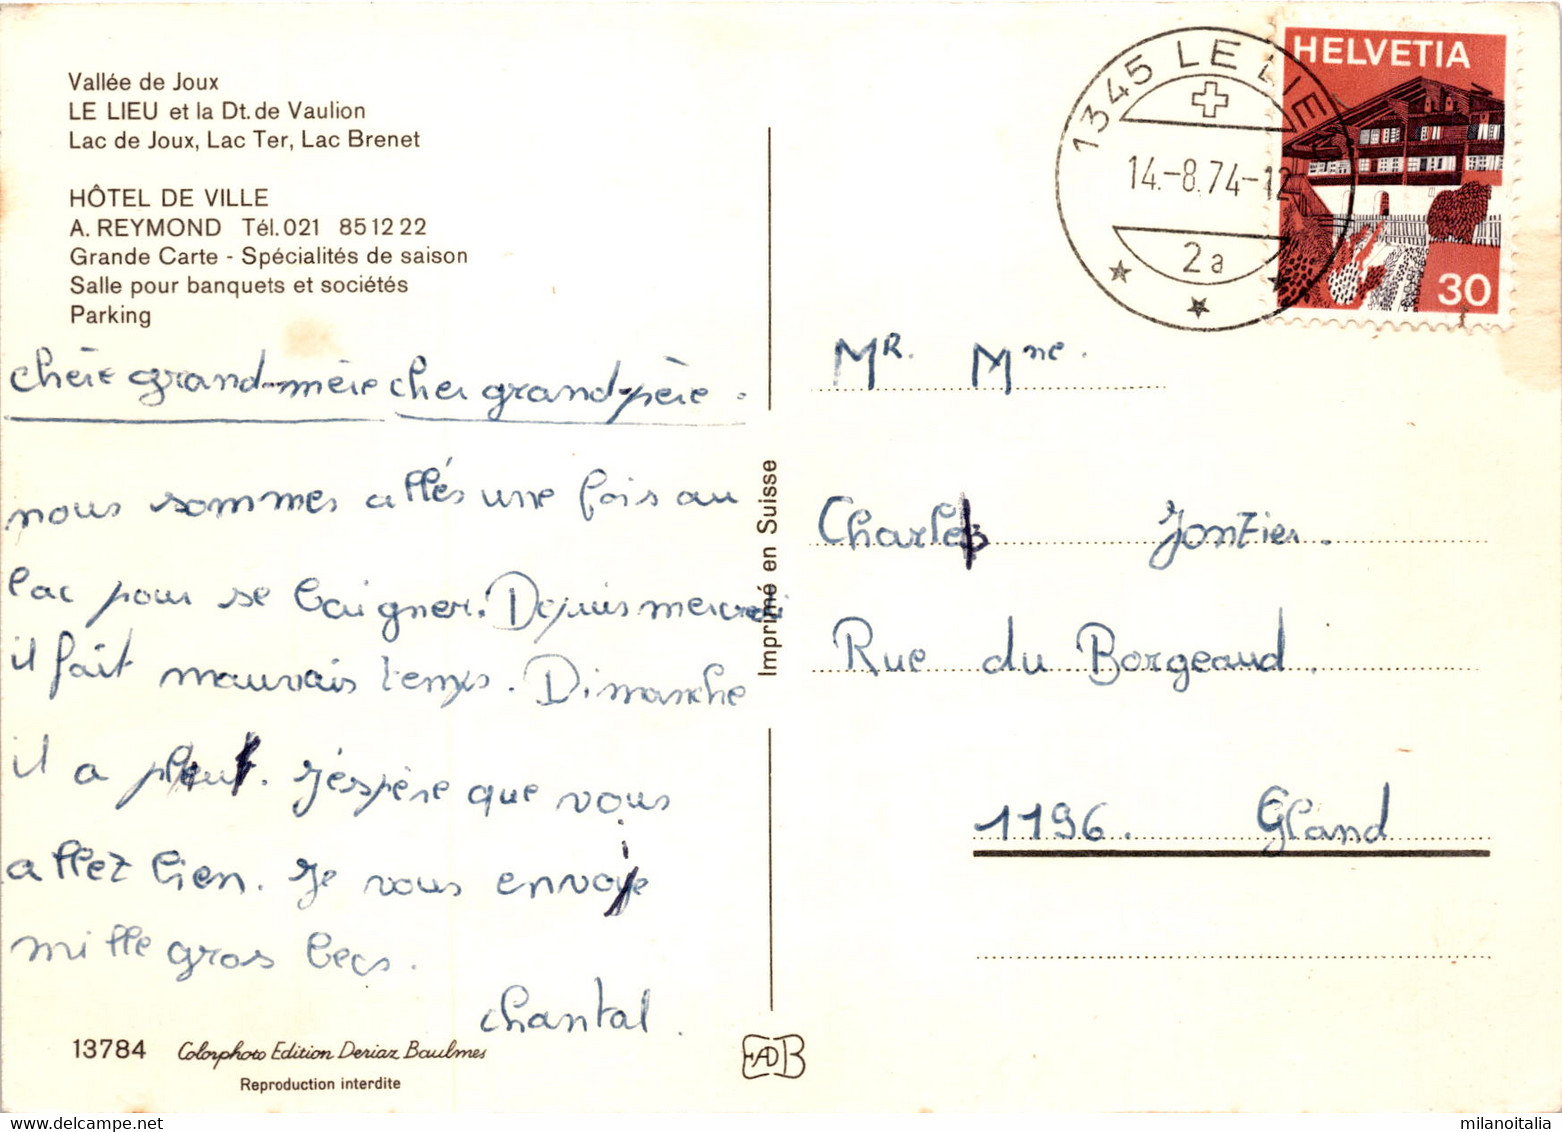 Vallée de Joux
LE LIEU et la Dt. de Vaulion
Lac de Joux, Lac Ter, Lac Brenet
HÔTEL DE VILLE
A. REYMOND Tél. 021 85 12 22
Grande Carte - Spécialités de saison
Salle pour banquets et sociétés
Parking
chère grand-mère cher grand-père.
nous sommes allés une fois au
lac pour se baigner. Depuis mercredi
il fait mauvais temps. Dimanche
il a pleut. j'espère que vous
allez bien. je vous envoie
mille gros becs.
chantal.
13784 Colorphoto Edition Deriaz Baulmes
Reproduction interdite
Imprimé en Suisse
EADB
1345 LE LIEU
14.-8.74-12
2a
HELVETIA
30
MR. Mme.
Charles Jontier.
Rue du Borgeaud.
1196. Gland
milanoitalia